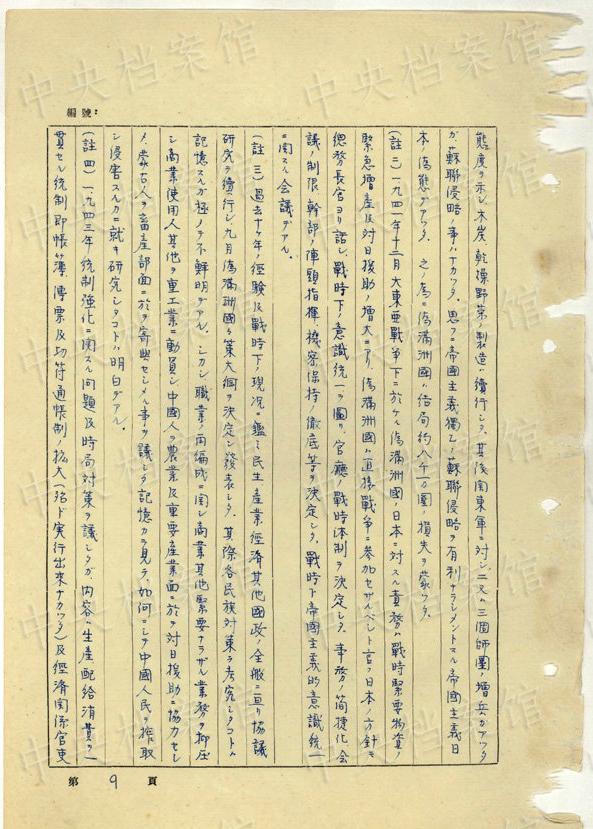 編號:
態度ヲ示シ、木炭、乾燥野菜ノ製造ハ續行シタ。其後関東軍ニ対シ、二又ハ三個師團ノ増兵ガアツタ
ガ、蘇聯侵略ノ事ハナカツタ。思フニ帝國主義獨乙ノ蘇聯侵略ヲ有利ナラシメントスル帝國主義日
本ノ偽態デアツタ。之ノ為ニ偽満洲國ハ結局約八千万圓ノ損失ヲ蒙ツタ。
(註二)一九四一年十二月大東亜戦争下ニ於ケル偽満洲國ノ日本ニ対スル責務ハ戰時緊要物資ノ
緊急増産及対日援助ノ増大ニアリ、偽満洲國ハ直接戰争ニ参加セザルベシト言フ日本ノ方針ヲ
總務長官ヨリ話シ、戰時下ノ意識統一ヲ圖リ、官廳ノ戰時体制ヲ決定シタ。事務ノ簡捷化、会
議ノ制限、幹部ノ陣頭指揮、機密保持ノ徹底等ヲ決定シタ。戰時下帝國主義的意識統一
ニ関スル会議デアル。
(註三)過去十ヶ年ノ経験及戰時下ノ現况ニ鑑ミ民生、産業、經済其他國政ノ全般ニ亘リ協議
研究ヲ續行シ九月偽満洲國ノ策大綱ヲ決定シ發表シタ。其際各民族対策ヲ考究シタコトハ
記憶スルガ極メテ不鮮明デアル。シカシ職業ノ再編成ニ関シ商業其他緊要ナラザル業務ヲ抑圧
シ商業使用人其他ヲ重工業ニ動員シ中國人ヲ農業及重要産業面ニ於テ対日援助ニ協力セシ
メ、蒙古人ヲ畜産部面ニ於テ寄與セシメル事ヲ議シタ記憶カラ見テ、如何ニシテ中國人民ヲ搾取
シ侵害スルカニ就キ研究シタコトハ明白デアル。
(註四)一九四三年統制強化ニ関スル問題及時局対策ヲ議シタガ、内容ハ生産配給消費ヲ一
貫セル統制即帳簿、傳票及切符通帳制ノ拡大(殆ド実行出来ナカツタ)及經済関係官吏
第 9 頁
中央档案馆